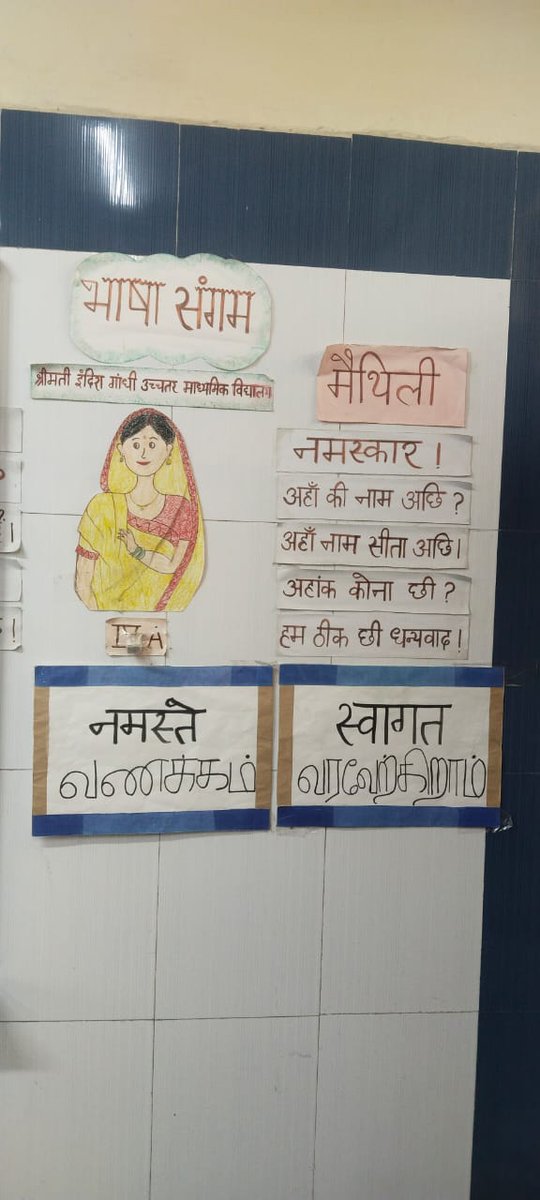 भाषा संगम
श्रीमती इंदिरा गांधी उच्चतर माध्यमिक विद्यालय
मैथिली
नमस्कार !
अहाँ की नाम अछि ?
अहाँ नाम सीता अछि।
अहांक कोना छी ?
हम ठीक छी धन्यवाद !
नमस्ते
வணக்கம்
स्वागत
வரவேற்கிறாம்